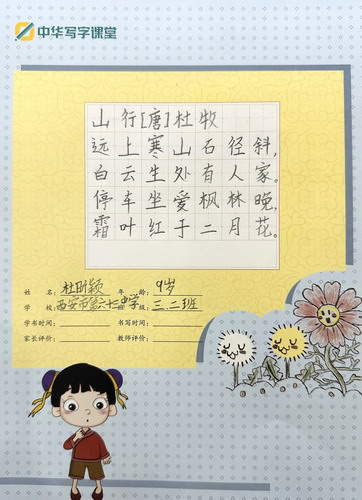 中华写字课堂
山行[唐]杜牧
远上寒山石径斜,
白云生处有人家。
停车坐爱枫林晚,
霜叶红于二月花。
姓名:杜玥颖 年龄:9岁
学校:西安市第六十二中学 班级:三.二班
学书时间: 书写时间:
家长评价: 教师评价: